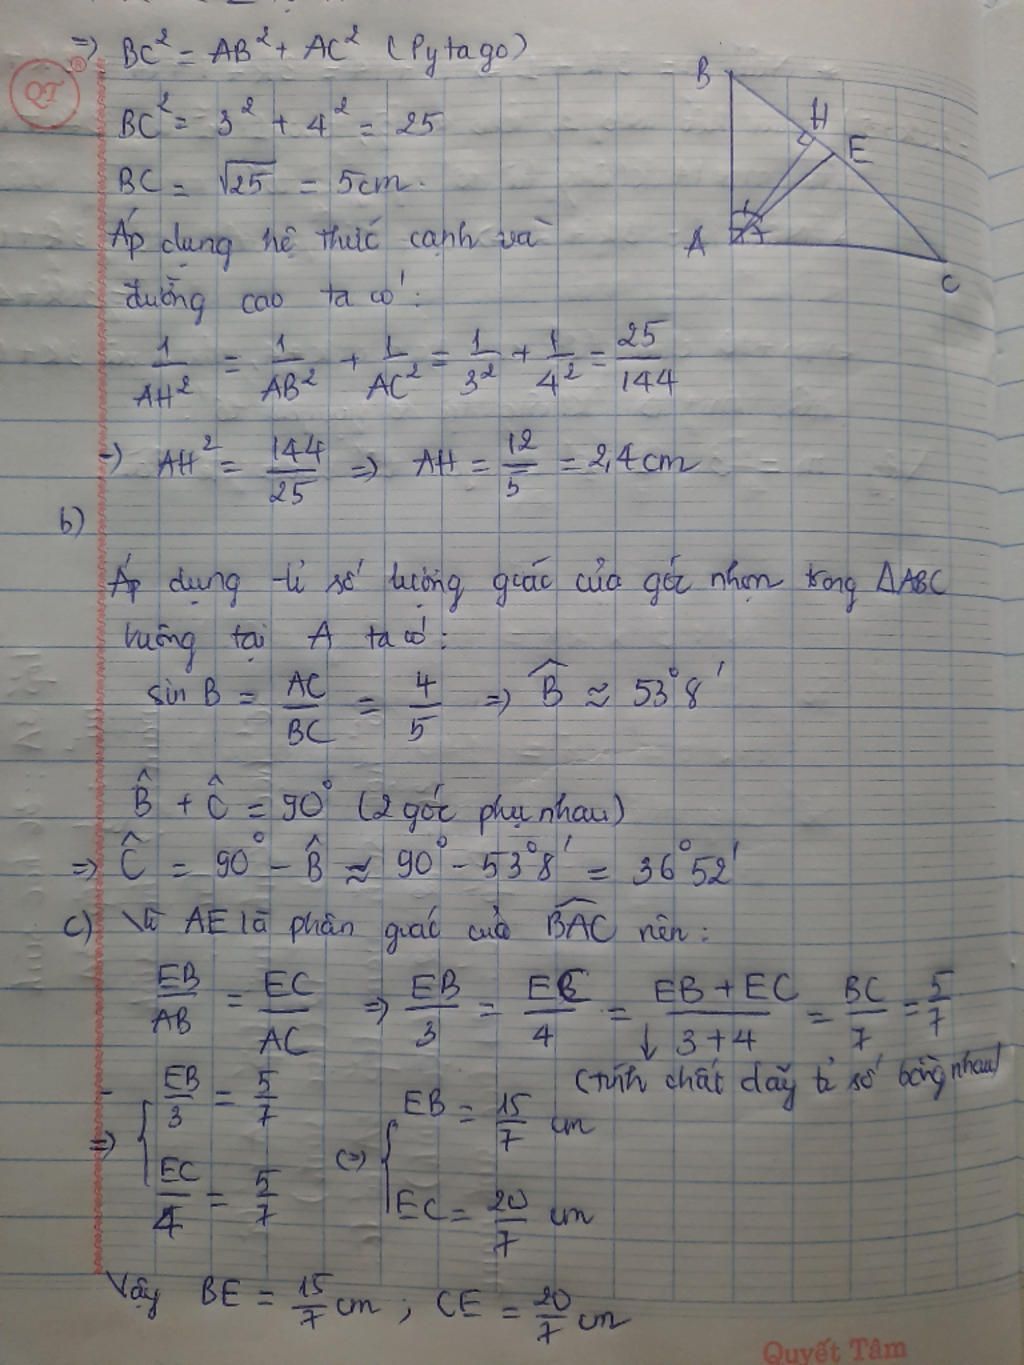 => BC² = AB² + AC² (Pytago)
QT ®
BC² = 3² + 4² = 25
BC = √25 = 5cm.
B
H
E
A
C
Áp dụng hệ thức cạnh và
đường cao ta có:
1/AH² = 1/AB² + 1/AC² = 1/3² + 1/4² = 25/144
=> AH² = 144/25 => AH = 12/5 = 2,4 cm
b)
Áp dụng tỉ số lượng giác của góc nhọn trong ΔABC
vuông tại A ta có:
sin B = AC/BC = 4/5 => B̂ ≈ 53°8'
B̂ + Ĉ = 90° (2 góc phụ nhau)
=> Ĉ = 90° - B̂ ≈ 90° - 53°8' = 36°52'
c) Vì AE là phân giác của B̂AC nên:
EB/AB = EC/AC => EB/3 = EC/4 = (EB + EC)/(3+4) = BC/7 = 5/7
↓ (tính chất dãy tỉ số bằng nhau)
=> { EB/3 = 5/7 (=>) { EB = 15/7 cm
EC/4 = 5/7 EC = 20/7 cm
Vậy BE = 15/7 cm ; CE = 20/7 cm
Quyết Tâm